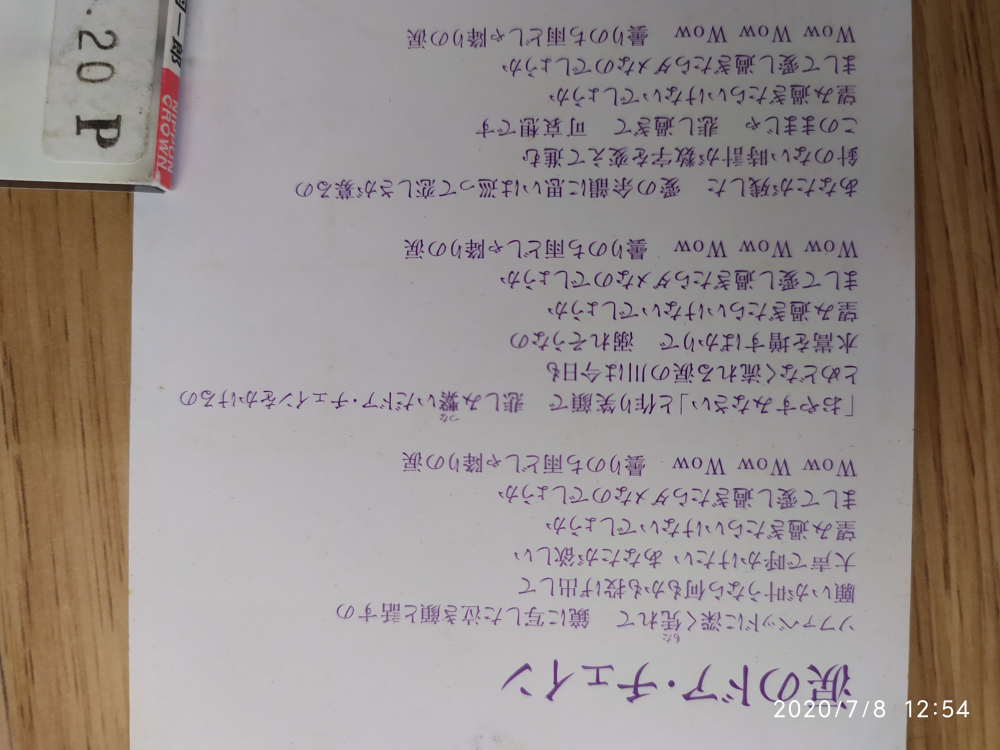 2020/7/8 12:54
涙のドア・チェイン
ソファベッドに深く凭れて　鏡に写した泣き顔と話すの
もた
願いが叶うなら何もかも投げ出して
大声で呼かけたい あなたが欲しい
望み過ぎたらいけないでしょうか
まして愛し過ぎたらダメなのでしょうか
Wow Wow Wow　曇りのち雨どしゃ降りの涙
「おやすみなさい」と作り笑顔で　悲しみ繋いだドア・チェインをかけるの
つな
とめどなく流れる涙の川は今日も
水嵩を増すばかりで　溺れそうなの
望み過ぎたらいけないでしょうか
まして愛し過ぎたらダメなのでしょうか
Wow Wow Wow　曇りのち雨どしゃ降りの涙
あなたが残した　愛の余韻に思いは巡って恋しさが募るの
針のない時計が数字を変えて進む
このままじゃ　悲し過ぎて　可哀想です
望み過ぎたらいけないでしょうか
まして愛し過ぎたらダメなのでしょうか
Wow Wow Wow　曇りのち雨どしゃ降りの涙
NIPPON
CROWN
一郎
.20 P